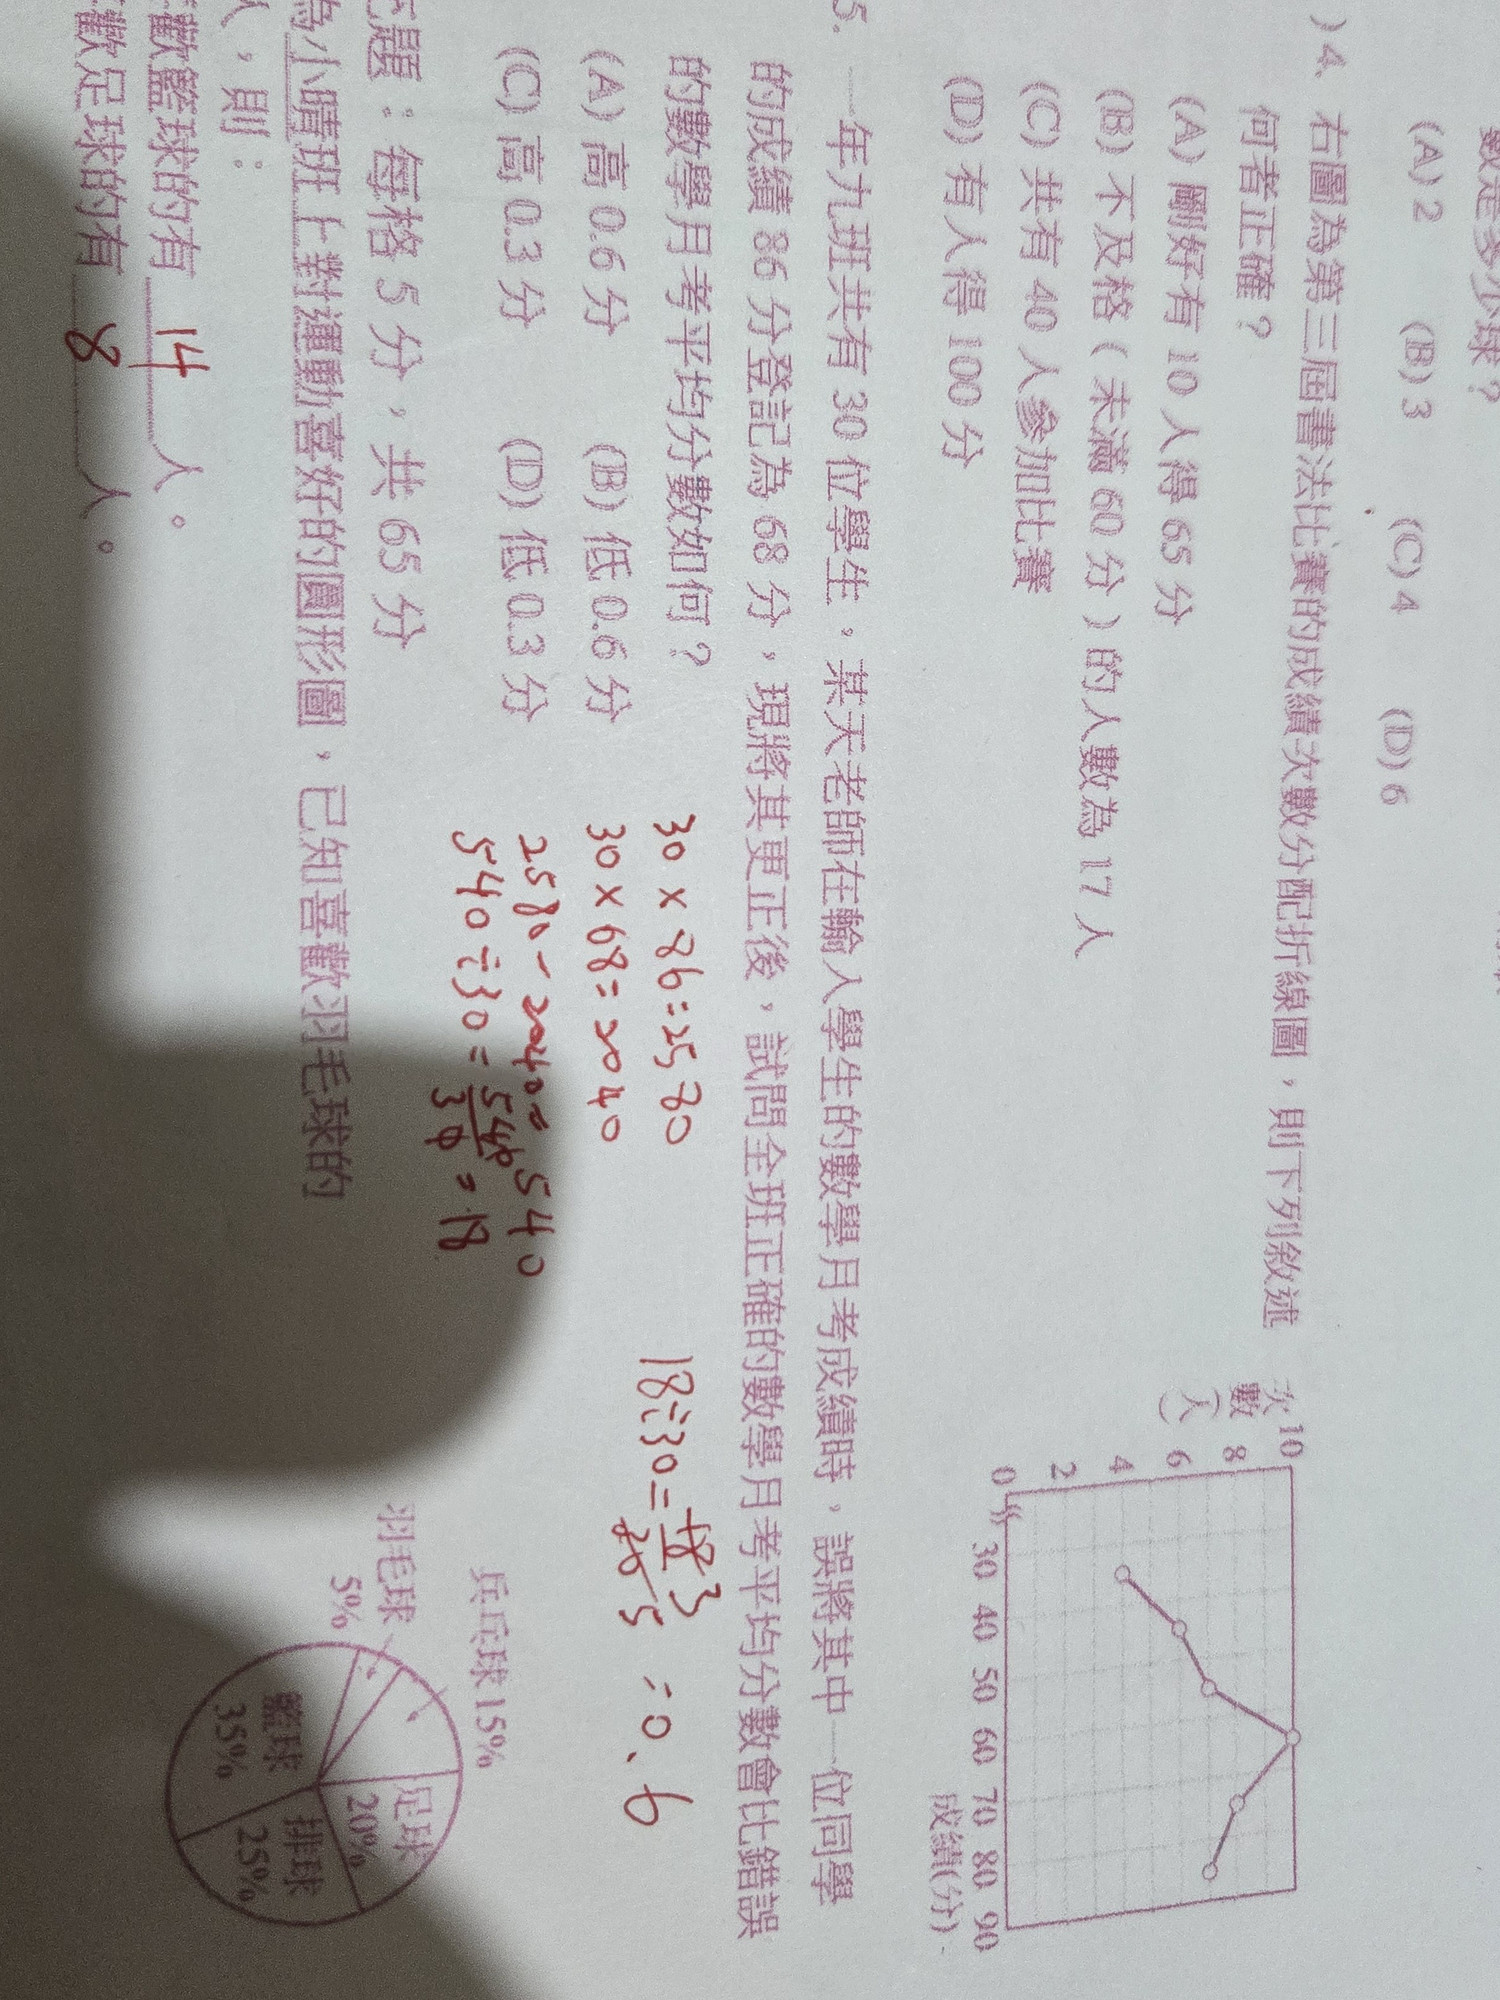 數是多少球？
(A) 2 (B) 3 (C) 4 (D) 6
) 4. 右圖為第三屆書法比賽的成績次數分配折線圖，則下列敘述
何者正確？
(A) 剛好有 10 人得 65 分
(B) 不及格 ( 未滿 60 分 ) 的人數為 17 人
(C) 共有 40 人參加比賽
(D) 有人得 100 分
次數(人)
10
8
6
4
2
0
30 40 50 60 70 80 90
成績(分)
5. 一年九班共有 30 位學生，某天老師在輸入學生的數學月考成績時，誤將其中一位同學
的成績 86 分登記為 68 分，現將其更正後，試問全班正確的數學月考平均分數會比錯誤
的數學月考平均分數如何？
(A) 高 0.6 分 (B) 低 0.6 分
(C) 高 0.3 分 (D) 低 0.3 分
30 × 86 = 2580
30 × 68 = 2040
2580 - 2040 = 540
540 ÷ 30 = 540/30 = 18
18 ÷ 30 = 18/30 3/5 = 0.6
題：每格 5 分，共 65 分
為小晴班上對運動喜好的圓形圖，已知喜歡羽毛球的
人，則：
歡籃球的有 14 人。
歡足球的有 8 人。
兵乓球 15%
羽毛球
5%
足球
20%
籃球
35%
排球
25%